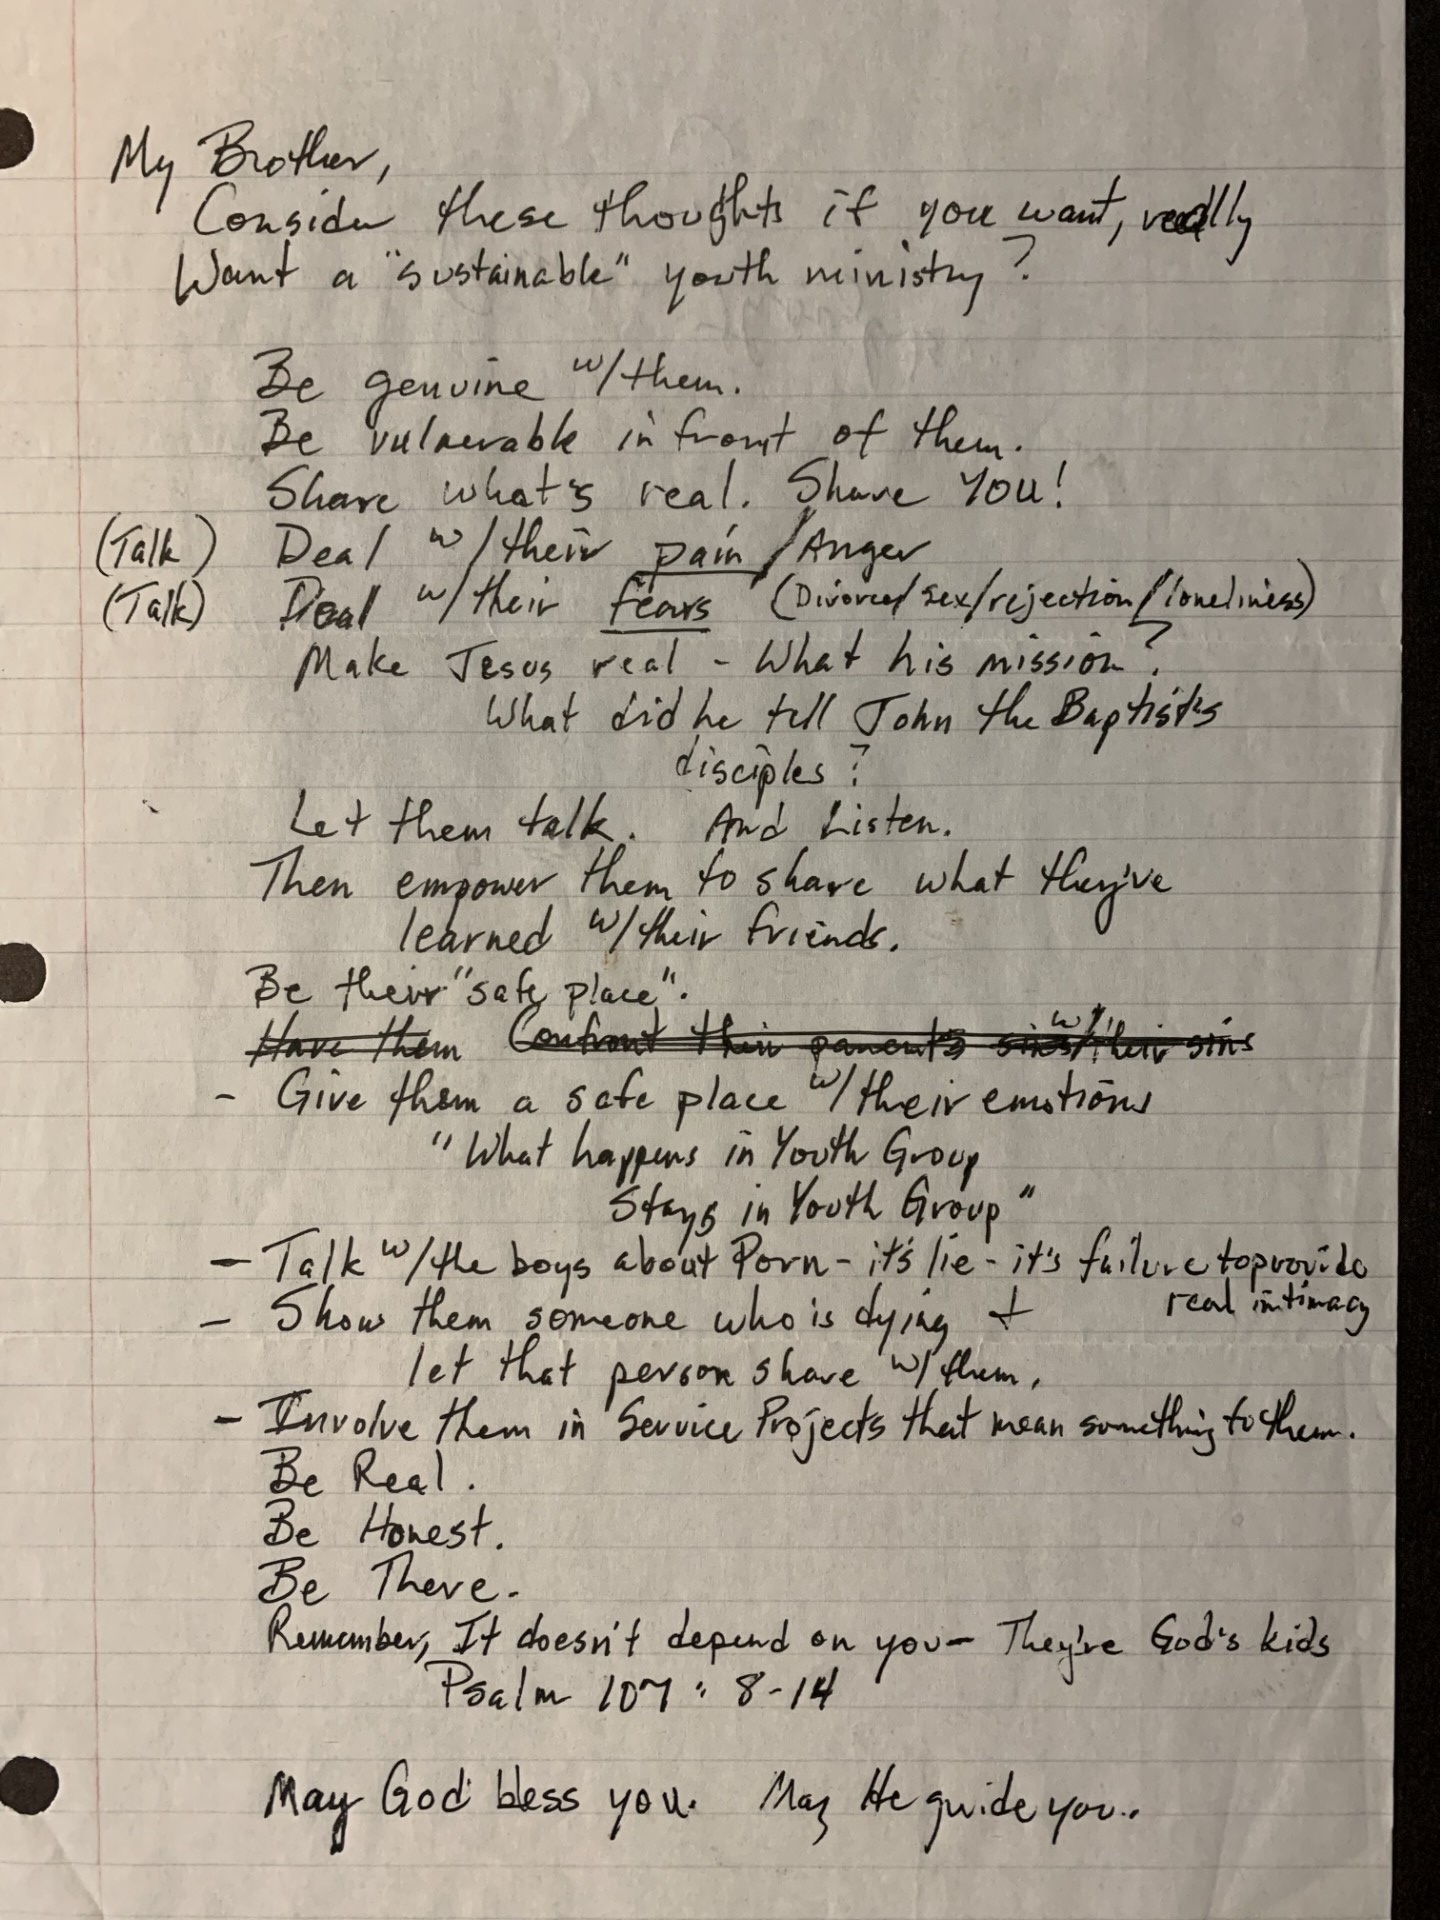 My Brother,
Consider these thoughts if you want, really
Want a "sustainable" youth ministry?
Be genuine w/them.
Be vulnerable in front of them.
Share what's real. Share YOU!
(Talk) Deal w/their pain/Anger
(Talk) Deal w/their fears (Divorce/sex/rejection/loneliness)
Make Jesus real - What his mission?
What did he tell John the Baptist's
disciples?
Let them talk. And Listen.
Then empower them to share what they've
learned w/their friends.
Be their "safe place".
Have them Confront their parent's sins w/their sins
- Give them a safe place w/their emotions
"What happens in Youth Group
Stays in Youth Group"
- Talk w/the boys about Porn - it's lie - it's failure to provide
real intimacy
- Show them someone who is dying +
let that person share w/them.
- Involve them in Service Projects that mean something to them.
Be Real.
Be Honest.
Be There.
Remember, It doesn't depend on you - They're God's kids
Psalm 107: 8-14
May God bless you. May He guide you..